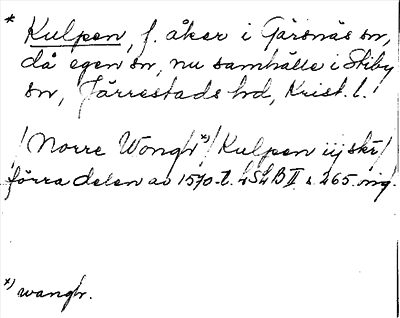 * Kulpen, f. åker i Gärsnäs sn,
då egen sn, nu samhälle i Stiby
sn, Järrestads hd, Krist. l.
/Norre Wongr *)/ Kulpen iij skr/
förra delen av 1570-t. LSkB II s. 265. orig.
*) wangr.